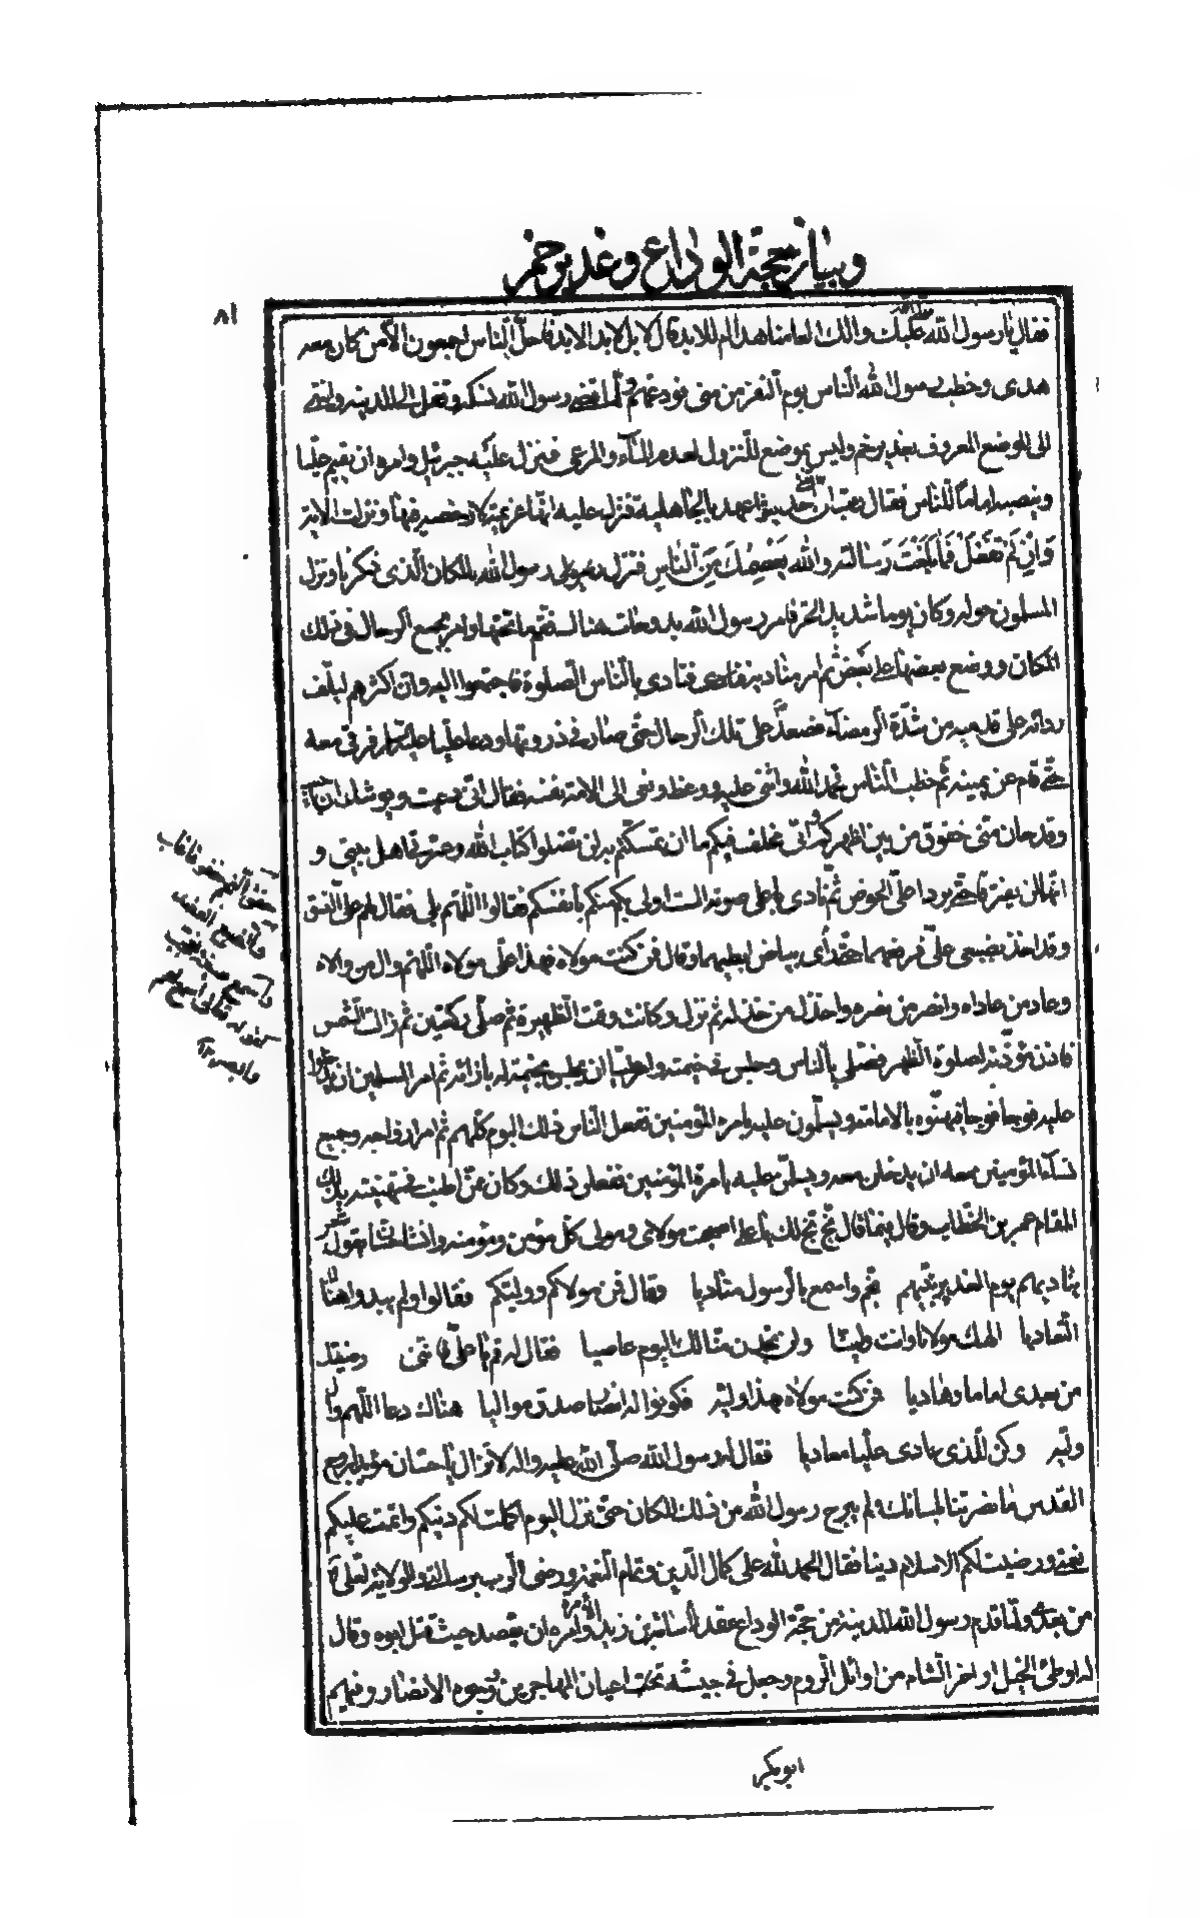 وبيان حجة الوداع وغدير خم
٨١
فقال يا رسول الله صلى الله عليك والك العامنا هذا ام للابد قال لا بل لابد الابد فاحل الناس اجمعون الا من كان معه
هدى وخطب رسول الله الناس يوم النفر من منى فودعهم ولما قضى رسول الله نسكه وقفل الى المدينة وانتهى
الى الموضع المعروف بغدير خم وليس بموضع للنزول لعدم الماء والمرعى فنزل عليه جبرئيل وامره ان يقيم عليا
وينصبه اماما للناس فقال يا رب ان امتى حديثوا عهد بالجاهلية فنزل عليه انها عزيمة لا رخصة فيها ونزلت الاية
وَانِْ لَمْ تَفْعَلْ فَمَا بَلَّغْتَ رِسالته والله يَعْصِمُكَ مِنَ النّاسِ فنزل رسول الله بالمكان الذى ذكرنا ونزل
المسلمون حوله وكان يوما شديد الحر فامر رسول الله بدوحات هناك فقم ما تحتها وامر بجمع الرحال فى ذلك
المكان ووضع بعضها على بعض ثم امر مناديه فنادى فى الناس الصلوة فاجتمعوا اليه وان اكثرهم ليلف
ردائه على قدميه من شدة الرمضاء فصعد على تلك الرحال حتى صار فى ذروتها ودعا عليا عليه السلام فرقى معه
حتى قام عن يمينه ثم خطب الناس فحمد الله واثنى عليه ووعظ ونعى الى الامة نفسه فقال انى دعيت ويوشك ان اجيب
وقد حان منى خفوق من بين اظهركم وانى مخلف فيكم ما ان تمسكتم به لن تضلوا كتاب الله وعترتى اهل بيتى و
انهما لن يفترقا حتى يردا على الحوض ثم نادى باعلى صوته الست اولى بكم منكم بانفسكم فقالوا اللهم بلى فقال لهم على النسق
وقد اخذ بضبعى على فرفعهما حتى رأى بياض ابطيهما وقال فمن كنت مولاه فهذا على مولاه اللهم وال من والاه
وعاد من عاداه وانصر من نصره واخذل من خذله ثم نزل وكانت وقت الظهيرة ثم صلى ركعتين ثم زالت الشمس
فاذن مؤذنه لصلوة الظهر فصلى بالناس وجلس فى خيمته وامر عليا ان يجلس بخيمة له بازائه ثم امر المسلمين ان يدخلوا
عليه فوجا فوجا فيهنئوه بالامامة ويسلمون عليه بامرة المؤمنين ففعل الناس ذلك اليوم كلهم ثم امر ازواجه وجميع
نساء المؤمنين معه ان يدخلن معه ويسلمن عليه بامرة المؤمنين ففعلن ذلك وكان ممن اطنب فى تهنئته بذلك
المقام عمر بن الخطاب وقال فيما قال بخ بخ لك يا على اصبحت مولاى ومولى كل مؤمن ومؤمنة وانشأ حسان يقول شعر
يناديهم يوم الغدير نبيهم بخم واسمع بالرسول مناديا وقال فمن مولاكم ووليكم فقالوا ولم يبدوا هناك
التعاديا الهك مولانا وانت ولينا ولن تجدن منا لك اليوم عاصيا فقال له قم يا على فاننى رضيتك
من بعدى اماما وهاديا فمن كنت مولاه فهذا وليه فكونوا له انصار صدق مواليا هناك دعا اللهم وال
وليه وكن للذى عادى عليا معاديا فقال له رسول الله صلى الله عليه واله لا تزال يا حسان مؤيدا بروح
القدس ما نصرتنا بلسانك ولم يبرح رسول الله من ذلك المكان حتى نزل اليوم اكملت لكم دينكم واتممت عليكم
نعمتى ورضيت لكم الاسلام دينا فقال الحمد لله على كمال الدين وتمام النعمة ورضى الرب برسالتى والولاية لعلى
من بعدى ولما قدم رسول الله المدينة من حجة الوداع عقد لأسامة بن زيد الأمرة وامره ان يقصد حيث قتل ابوه وقال
له اوطئ الخيل اواخر الشام من اوائل الروم وجعل فى جيشه تحت اعيان المهاجرين ووجوه الانصار وفيهم
ابوبكر